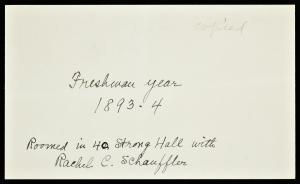 copied
Freshman year
1893-4
Roomed in 40 Strong Hall with
Rachel C. Schauffler